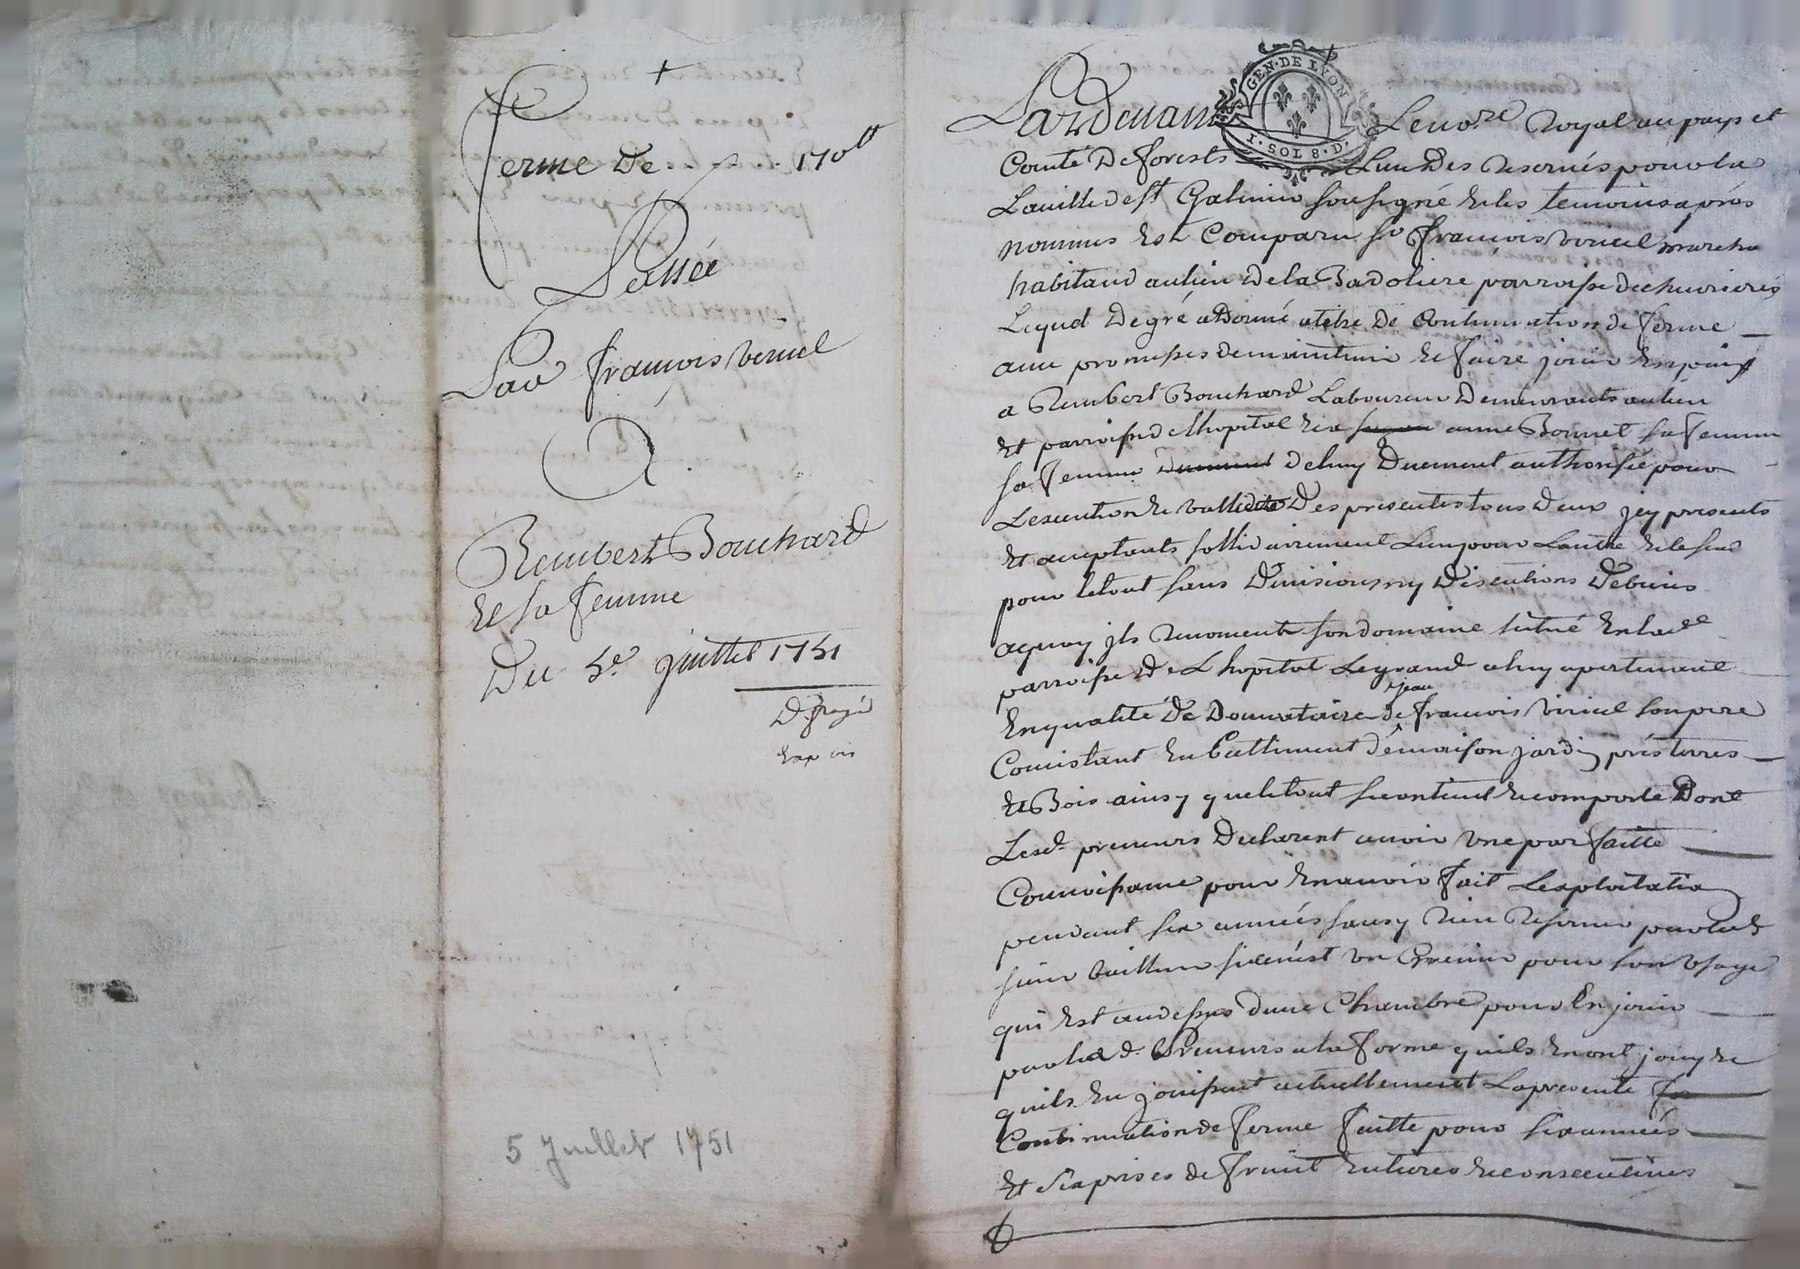 +
ferme de 170ᵗᵗ
Passée
Par francois veniel
A
Rembert Bouchard
Et sa femme
Du 5e juillet 1751
Exp
5 Juillet 1751
GEN·DE LYON
1·SOL 8·D·
Pardevant Le nore Royal au pays et
Comté De forests Lun Des reservés pour la
La ville de st Galmier soussigné Et les temoins aprés
nommés Est Comparu sr françois veniel marcha
habitand au lieu De la Badoliere parroisse de chevrieres
Lequel De gré a Donné a titre De Continuation de ferme
avec promesses de maintenir Et faire jouir
a Rembert Bouchard Laboureur Demeurants au lieu
Et parroisse de Lhopital Et a anne Bonnet sa femme
sa femme De luy Duement authorisée pour
Lexecution Et vallidité Des presentes tous Deux jcy presents
Et aceptants sollidairement Lun pour Lautre Et le seul
pour le tout sans Divisions ny Discutions De biens
a quoy jls renoncent son domaine situé En lade
parroisse De Lhopital Le grand a luy apartenant
En qualité De Donnataire de jean francois veniel son pere
Consistant En Battiment De maison jardin prés terres
Et Bois ainsy que le tout se contient Et comporte Dont
Lesd. preneurs Declarent avoir une parfaitte
Connoissance pour En avoir fait Lexploitation
pendant six années sans y rien reserver par led
sieur bailleur si ce n'est un Grenier pour son usage
qui Est au dessus dune Chambre pour En jouir
par lesd. Preneurs a la forme quils En ont jouy Et
quils En jouissent actuellement La presente
Continuation de ferme faitte pour six années
Et six prises de fruit Entieres Et consecutives